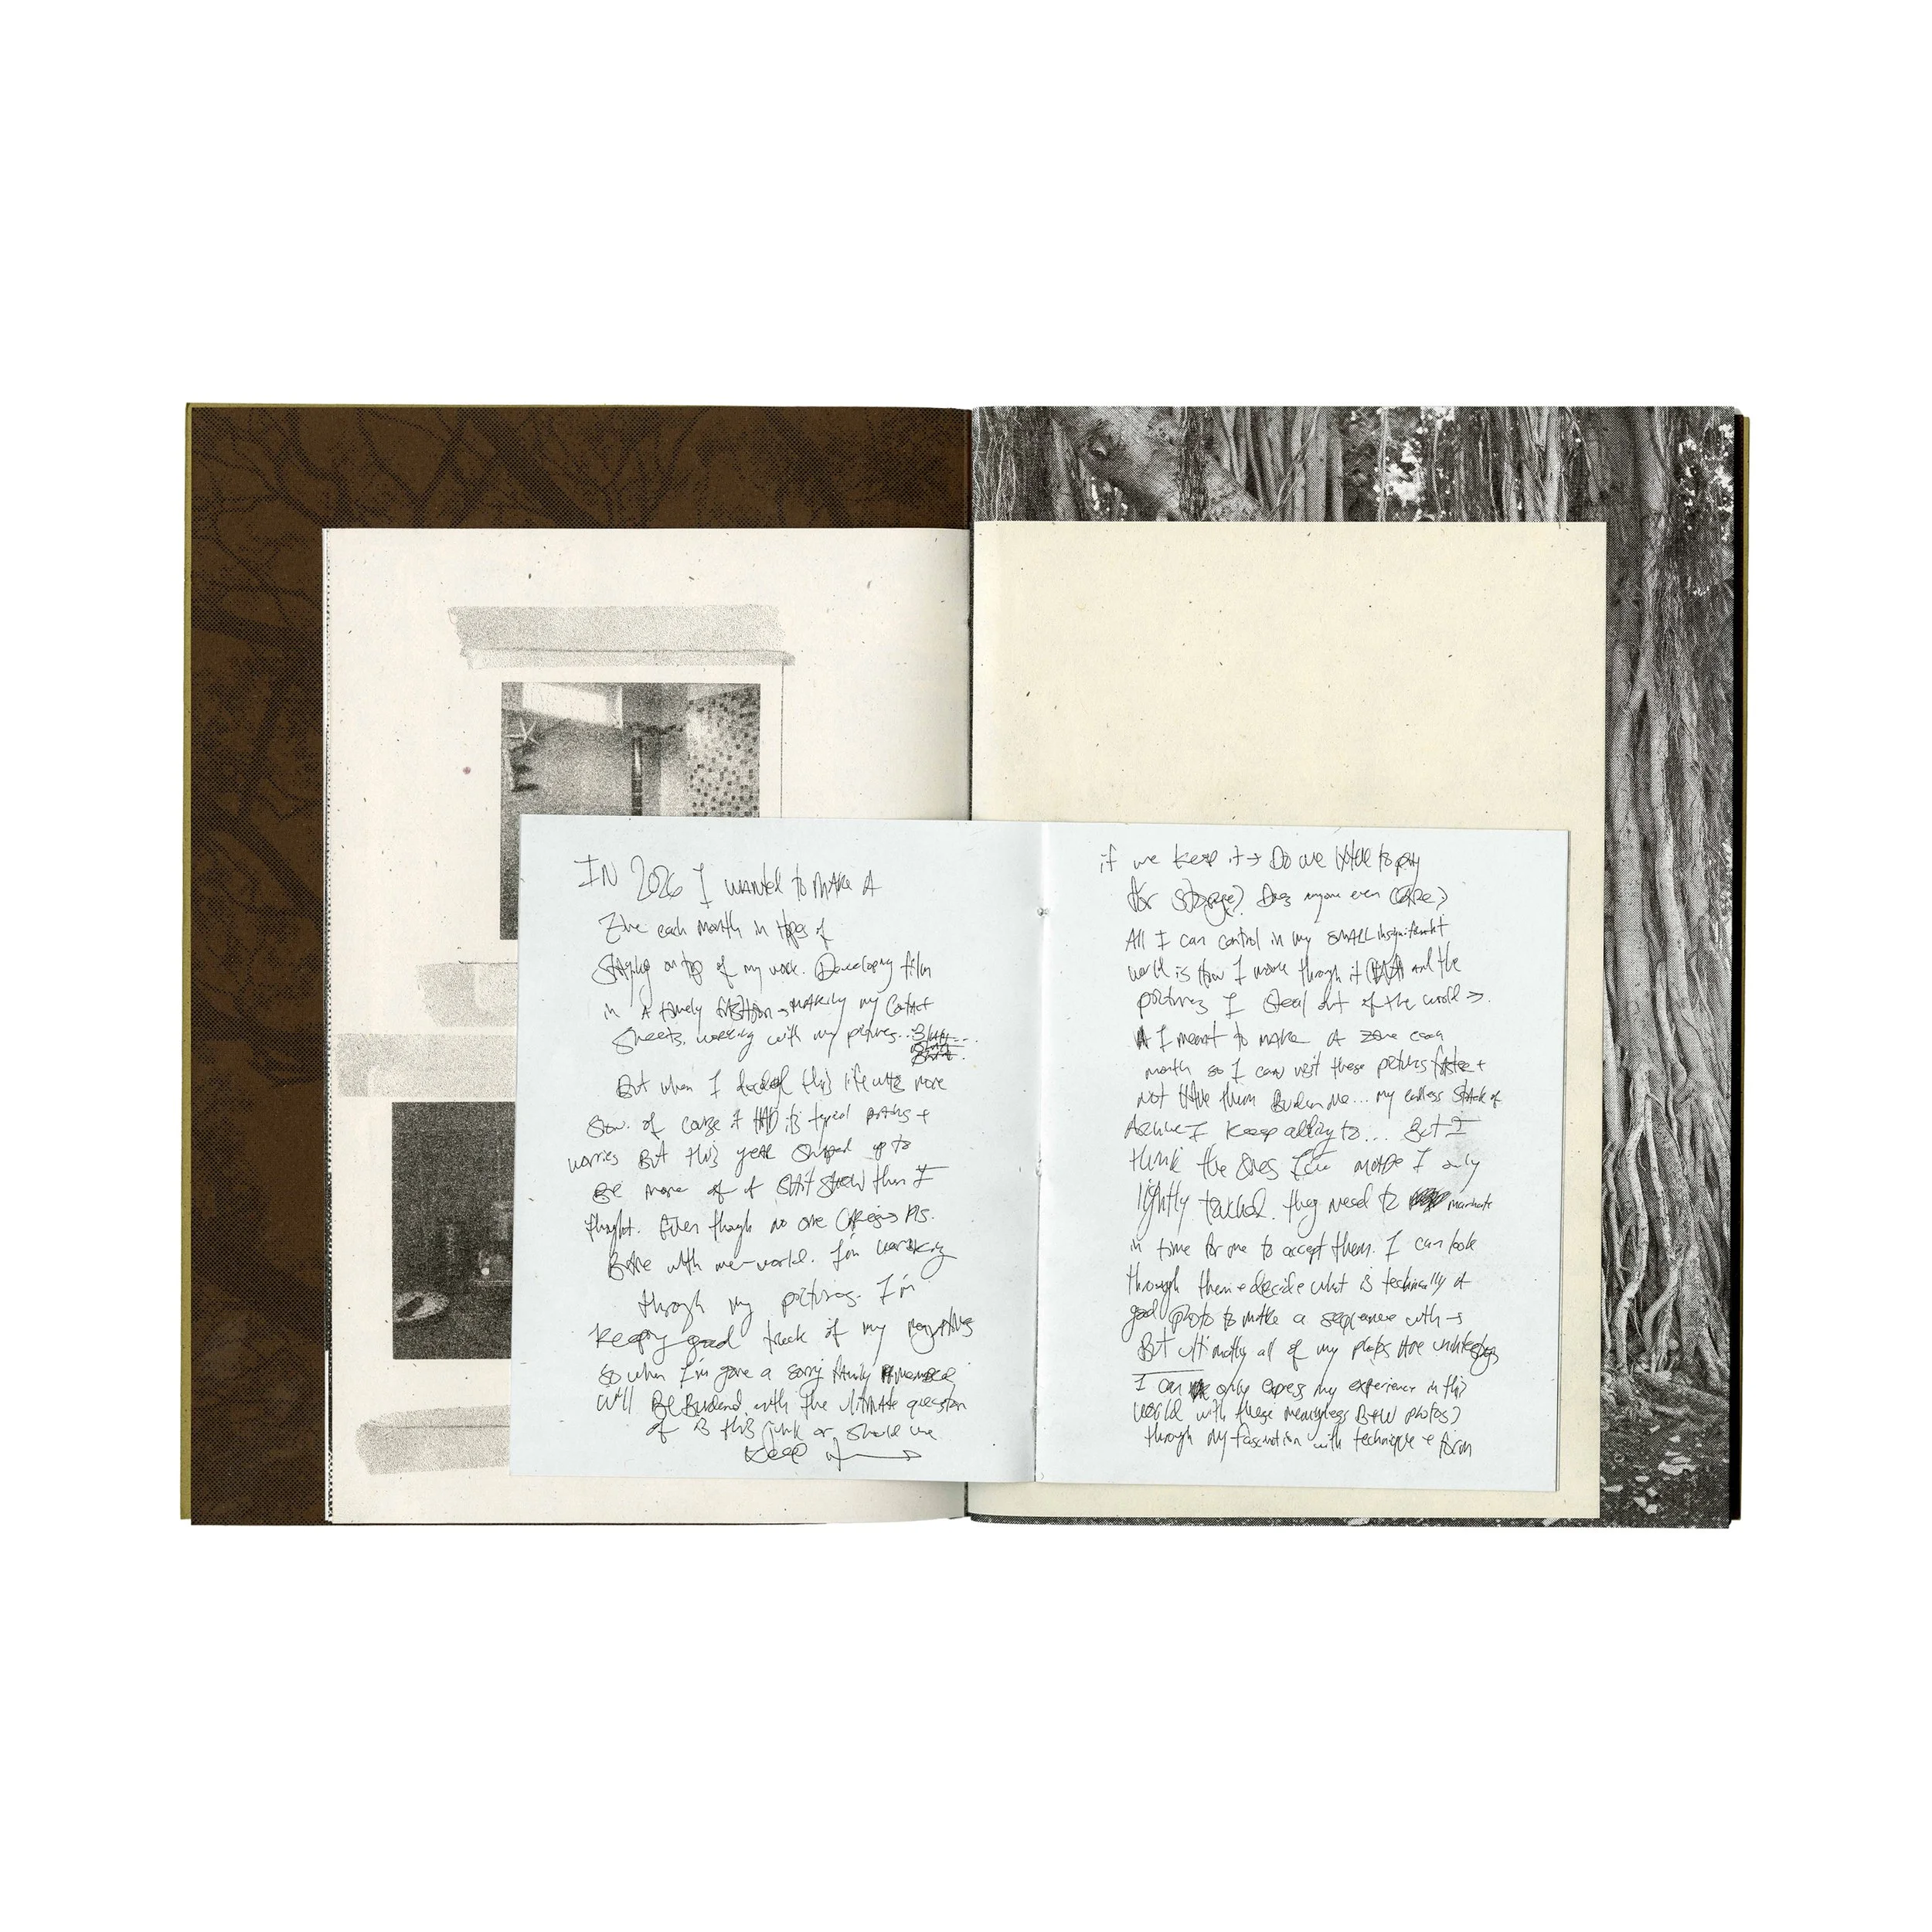 IN 2026 I wanted to make A
Zine each month in hopes of
Staying on top of my work. Developing film
in A timely fashion → making my contact
Sheets, working with my pictures...
But when I decided this life was more
slow. of course it HAD its typical paths +
worries But this year shaped up to
Be more of A Shit Show than I
thought. Even though no one cares → Pls.
Bare with me - world. I'm working
through my pictures. I'm
keeping good track of my negatives
so when I'm gone a sorry family member
will Be Burdend with the ultimate question
of is this junk or should we
keep it →
if we keep it → Do we have to pay
for storage? Does anyone even care?
All I can control in my SMALL insignificant
world is How I move through it and the
pictures I steal out of the world →.
I meant to make A zine each
month so I can visit these pictures faster +
not HAve them Burden me... my endless stack of
Archive I keep adding to... But I
think the ones I've made I only
lightly touched. they need to marinate
in time for me to accept them. I can look
through them + decide what is technically A
good photo to make a sequence with →
But ultimately all of my photos Are
I can only express my experience in this
world with these meaningless B+W photos?
through my fascination with technique + form